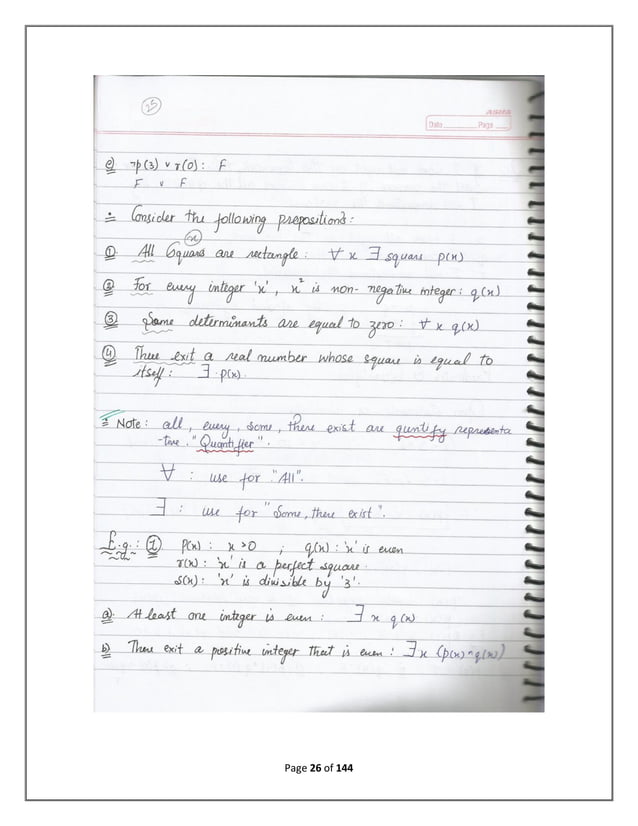 25
Date Page
c) ¬p(3) ∨ r(0) : F
F ∨ F
Consider the following prepositions :
(x)
① All Squars are rectangle : ∀ x ∃ square p(x)
② For every integer 'x', x² is non-negative integer : q(x)
③ Some determinants are equal to zero : ∀ x q(x)
④ There exit a real number whose square is equal to
itself : ∃ p(x).
Note : all, every, some, there exist are quntify representa
-tive . "Quantifier".
∀ : use for "All".
∃ : use for "Some, there exist".
E.g. : ① P(x) : x > 0 ; q(x) : 'x' is even
r(x) : 'x' is a perfect square.
s(x) : 'x' is divisible by '3'.
a) At least one integer is even : ∃ x q(x)
b) There exit a positive integer that is even : ∃x (p(x) ^ q(x))
Page 26 of 144